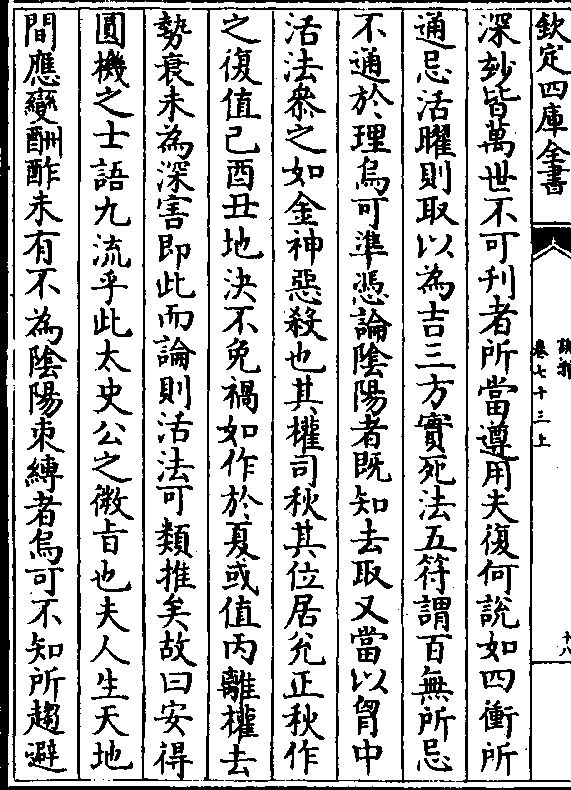 欽定四庫全書
說郛
卷七十三上
十八
深妙皆萬世不可刋者所當遵用夫復何說如四衝所
通忌活曜則取以為吉三方實死法五符謂百無所忌
不通於理烏可準憑論陰陽者既知去取又當以胷中
活法叅之如金神惡殺也其權司秋其位居兊正秋作
之復值己酉丑地決不免禍如作於夏或值丙離權去
勢衰未為深害即此而論則活法可類推矣故曰安得
圓機之士語九流乎此太史公之微旨也夫人生天地
間應變酬酢未有不為陰陽束縛者烏可不知所趨避